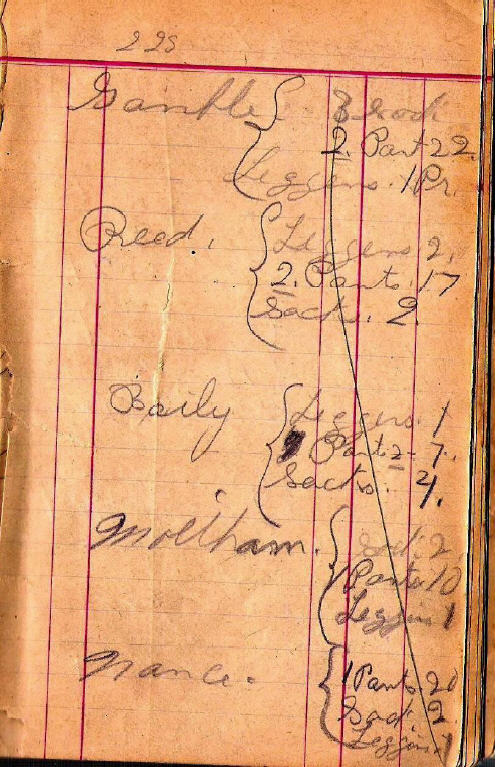 225
Gamble { 3 sack
2. Pant 22.
Leggens. 1 Pr.
Reed. { Leggens 2.
2. Pants. 17
Sacks. 2.
Baily { Leggens. 1
Pants 2 - 7.
Sacks. 4.
{ Sack 2
1 Pants 10
Leggins 1
Nance. { 1 Pants 20
Sack. 2.
Leggins 1